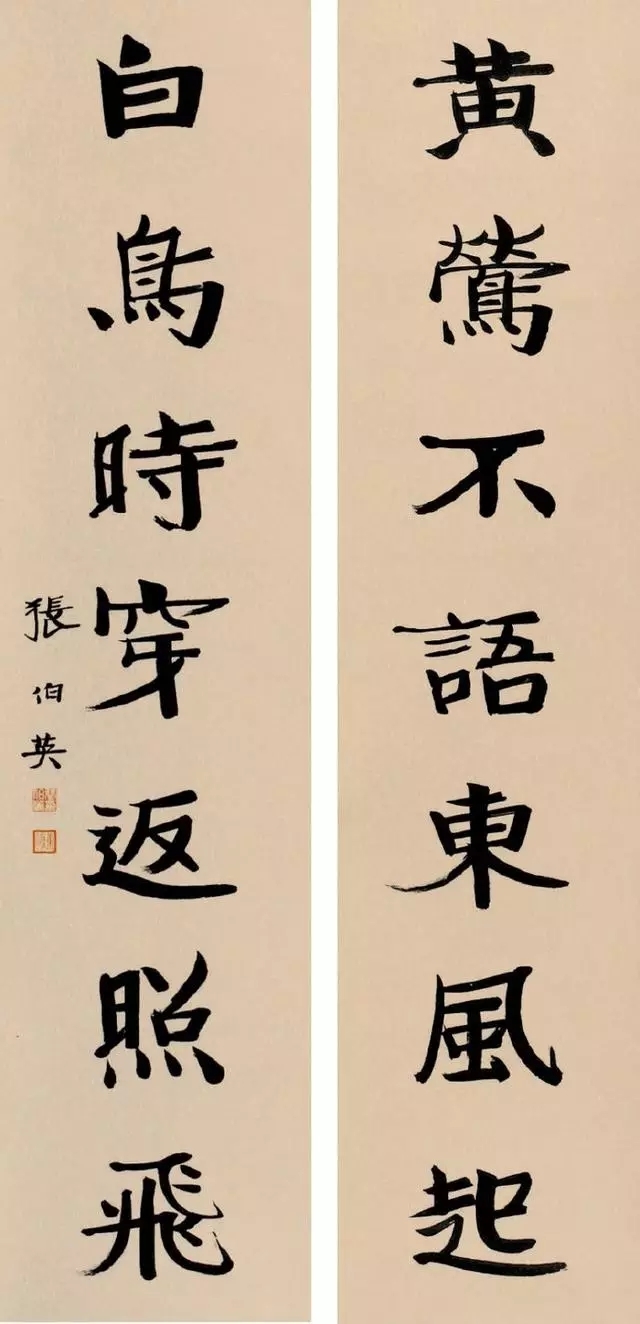 黃鶯不語東風起
白鳥時穿返照飛
張伯英